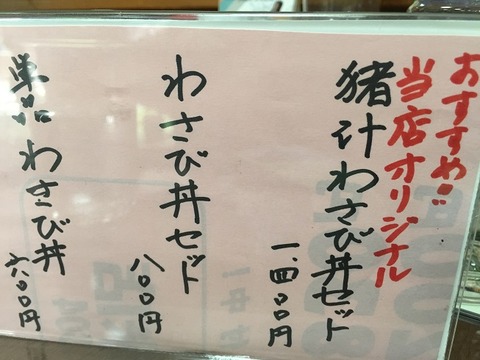 おすすめ!!
当店オリジナル
猪汁わさび丼セット
一、四〇〇円
わさび丼セット
八〇〇円
単品 わさび丼
六〇〇円